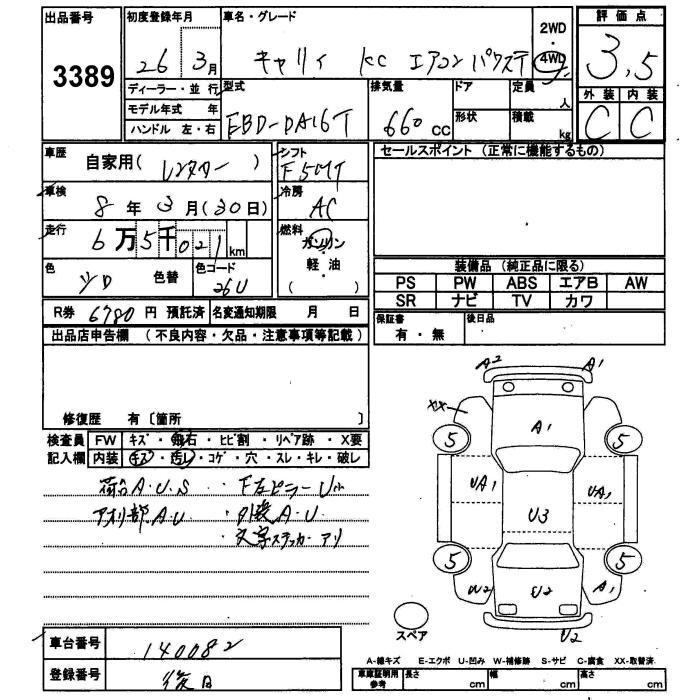 出品番号
3389
初度登録年月
26 3月
車名・グレード
キャリィ KC エアコン パワステ
2WD
・
4WD
評価点
3.5
外装 内装
C C
ディーラー・並行
モデル年式 年
ハンドル 左・右
型式
EBD-DA16T
排気量
660 cc
ドア
形状
定員
人
積載
kg
車歴
自家用( レンタカー )
シフト
F5MT
車検
8年3月(30日)
冷房
AC
走行
6万5千021km
燃料
ガソリン
軽・油
( )
色
シロ 色替
色コード
26U
R券 6780 円 預託済 名変通知期限 月 日
セールスポイント (正常に機能するもの)
装備品 (純正品に限る)
PS PW ABS エアB AW
SR ナビ TV カワ
保証書
有・無
後日品
出品店申告欄 (不良内容・欠品・注意事項等記載)
修復歴 有〔箇所 〕
検査員 FW キズ・飛石・ヒビ割・リペア跡・X要
記入欄 内装 キズ・汚レ・コゲ・穴・スレ・キレ・破レ
荷台A.U.S ・F左ピラーU小
アオリ部.A.U ・外装A.U
・文字ステッカーアリ
A2 A1
XX
5 A1 5
UA1 UA1
U3
5 5
U2 U2 A1
U2
スペア
車台番号 140082
登録番号 後日
A-線キズ E-エクボ U-凹み W-補修跡 S-サビ C-腐食 XX-取替済
車庫証明用
参考
長さ cm 幅 cm 高さ cm